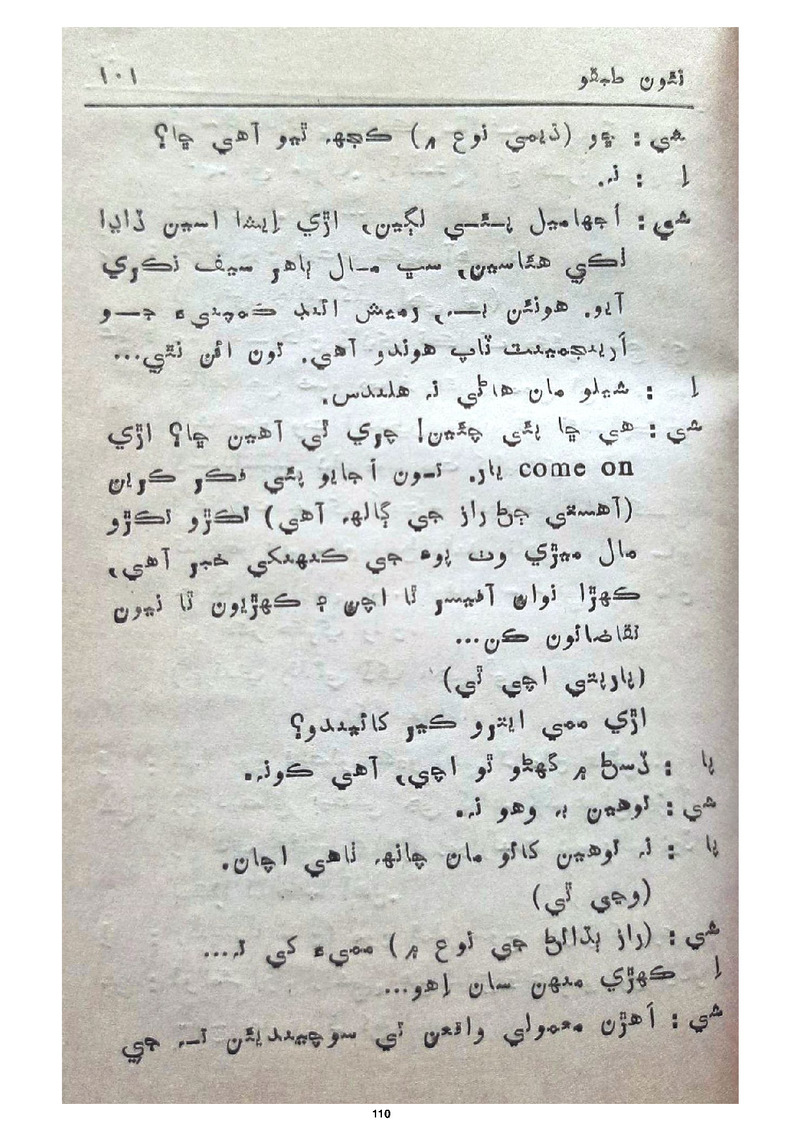 نئون طبقو ۱۰۱
شي : ڇو (ڌيمي نوع ۾) ڪجهہ ٿيو آهي ڇا؟
اِ : نہ.
شي : اُجهاميل پئي لڳين، اڙي اِيشا اسين ڏاڍا
لڪي هئاسين، سڀ مال ٻاهر سيف نڪري
آيو. هونئن بہ، رميش ائنڊ ڪمپنيءَ جو
اُرينجمينٽ ٽاپ هوندو آهي. تون ائن نٿي...
اِ : شيلو مان هاڻي نہ هلندس.
شي : هي ڇا پئي چئين! چري ٿي آهين ڇا؟ اڙي
come on يار. تون اُجايو پئي فڪر ڪرين
(آهستي ڄڻ راز جي ڳالهہ آهي) ٽڪڙو ٽڪڙو
مال ميڙي وٺ پوءِ جي ڪنهنکي خبر آهي،
ڪهڙا نوان آفيسر ٿا اچن ۽ ڪهڙيون ٿا نيون
تقاضائون ڪن...
(پاربتي اچي ٿي)
اڙي ممي ايترو ڪير کائيندو؟
پا : ڏسڻ ۾ گهڻو ٿو اچي، آهي ڪونہ.
شي : توهين بہ وهو نہ.
پا : نہ توهين کائو مان چانهہ ٺاهي اچان.
(وڃي ٿي)
شي : (راز ٻڌائڻ جي نوع ۾) مميءَ کي تہ...
اِ ڪهڙي منهن سان اِهو...
شي : اَهڙن معمولي واقعن تي سوچيندينئن تہ جي
110